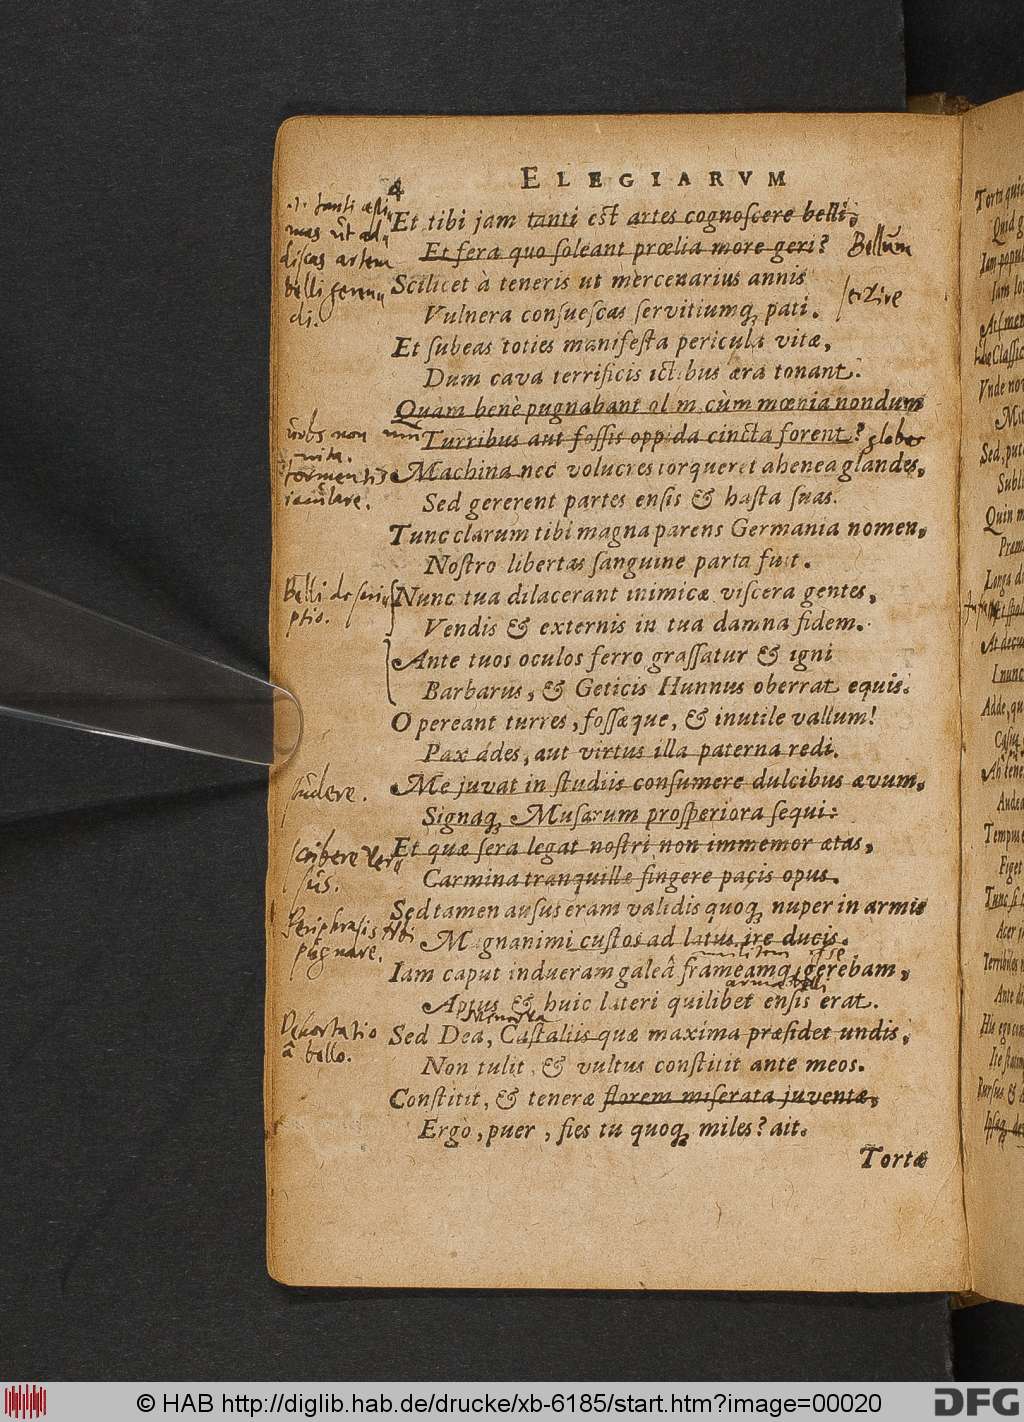 4
ELEGIARVM
Et tibi jam tanti est artes cognoscere belli,
Et fera quo soleant prœlia more geri?
Scilicet à teneris ut mercenarius annis
Vulnera consuescas servitiumq; pati.
Et subeas toties manifesta pericula vitæ,
Dum cava terrificis ictibus æra tonant.
Quàm benè pugnabant olim cùm mœnia nondum
Turribus aut fossis oppida cincta forent?
Machina nec volucres torqueret ahenea glandes,
Sed gererent partes ensis & hasta suas.
Tunc clarum tibi magna parens Germania nomen,
Nostro libertas sanguine parta fuit.
Nunc tua dilacerant inimicæ viscera gentes,
Vendis & externis in tua damna fidem.
Ante tuos oculos ferro grassatur & igni
Barbarus, & Geticis Hunnus oberrat equis.
O pereant turres, fossæque, & inutile vallum!
Pax ades, aut virtus illa paterna redi.
Me juvat in studiis consumere dulcibus ævum,
Signaq; Musarum prosperiora sequi:
Et quæ sera legat nostri non immemor ætas,
Carmina tranquillæ fingere pacis opus.
Sed tamen ausus eram validis quoq; nuper in armis
Magnanimi custos ad latus ire ducis.
Iam caput indueram galeâ frameamq; gerebam,
Aptus & huic lateri quilibet ensis erat.
Sed Dea, Castaliis quæ maxima præsidet undis,
Non tulit, & vultus constitit ante meos.
Constitit, & teneræ florem miserata juventæ,
Ergo, puer, fies tu quoq; miles? ait.
Tortæ
.i. tanti æsti-
mas ut ad-
discas artem
belli geren-
di.
Bellum
servire
urbs non mu-
nita.
globos
tormentis
iaculare.
Belli descri-
ptio.
studere.
scribere ver-
sus.
Periphrasis
pugnare.
militem esse
arma belli
Minerva
Dehortatio
â bello.
© HAB http://diglib.hab.de/drucke/xb-6185/start.htm?image=00020
DFG